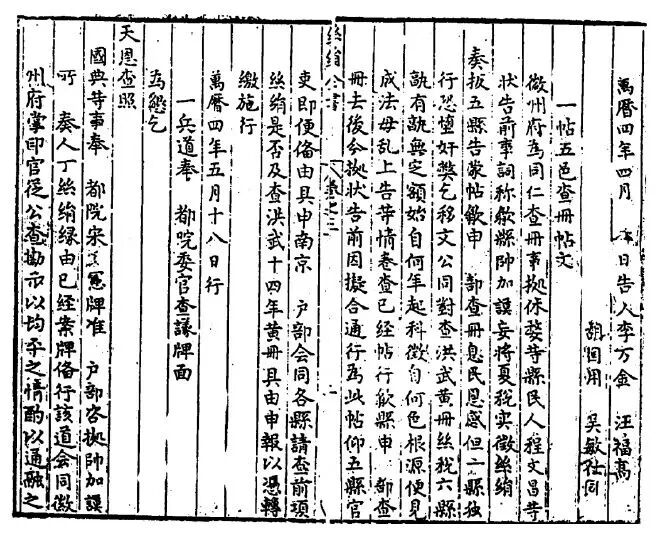 萬曆四年四月 日告人李万金 汪福高
胡國用 吴敏仕同
一帖五邑查冊帖文
徽州府為同仁查冊事拠休婺等縣民人程文昌等
狀告前事詞称歙縣帥加謨妄將夏税实徵絲絹
奏扳五縣告蒙帖歙申 部查冊息民恩感但二縣独
行恐堕奸弊乞移文公同對查洪武黄冊絲税六縣
孰有孰無定額始自何年起科徵自何色根源便見
成法毋乱上告等情卷查已經帖行歙縣申 部查
冊去後今拠狀告前因擬合通行為此帖仰五縣官
絲絹全書 卷之三
吏即便俻由具申南京 户部会同各縣請查前項
絲絹是否及查洪武十四年黄冊具由申報以憑轉
繳施行
萬曆四年五月十八日行
一兵道奉 都院委官查議牌面
為懇乞
天恩查照
國典等事奉 都院宋 憲牌准 户部咨拠帥加謨
所 奏人丁絲絹緣由已經案牌俻行該道会同徽
州府掌印官從公查勘示以均平之情酌以通融之